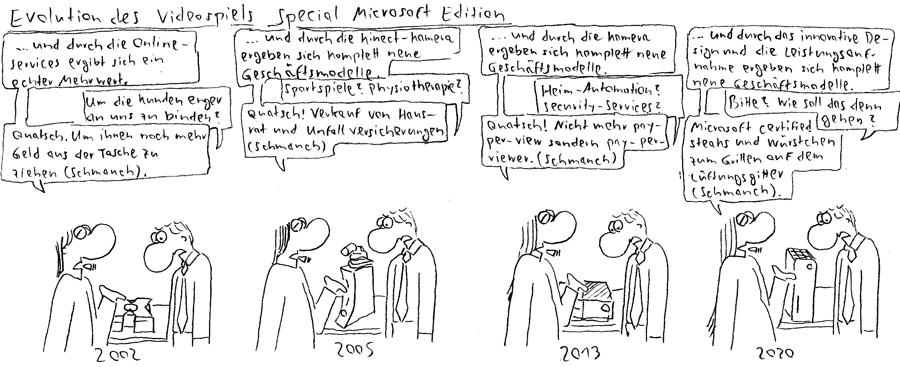 Evolution des Videospiels Special Microsoft Edition
... und durch die Online-
services ergibt sich ein
echter Mehrwert.
Um die Kunden enger
an uns zu binden?
Quatsch. Um ihnen noch mehr
Geld aus der Tasche zu
ziehen (Schmanch).
2002
... und durch die Kinect-Kamera
ergeben sich komplett neue
Geschäftsmodelle.
Sportspiele? Physiotherapie?
Quatsch! Verkauf von Haus-
rat und Unfallversicherungen
(Schmanch)
2005
... und durch die Kamera
ergeben sich komplett neue
Geschäftsmodelle.
Heim-Automation?
Security-Services?
Quatsch! Nicht mehr pay-
per-view sondern pay-per-
viewer. (Schmanch)
2013
... und durch das innovative De-
sign und die Leistungsauf-
nahme ergeben sich komplett
neue Geschäftsmodelle.
Bitte? Wie soll das denn
gehen?
Microsoft certified
steaks und Würstchen
zum Grillen auf dem
Lüftungsgitter
(Schmanch).
2020